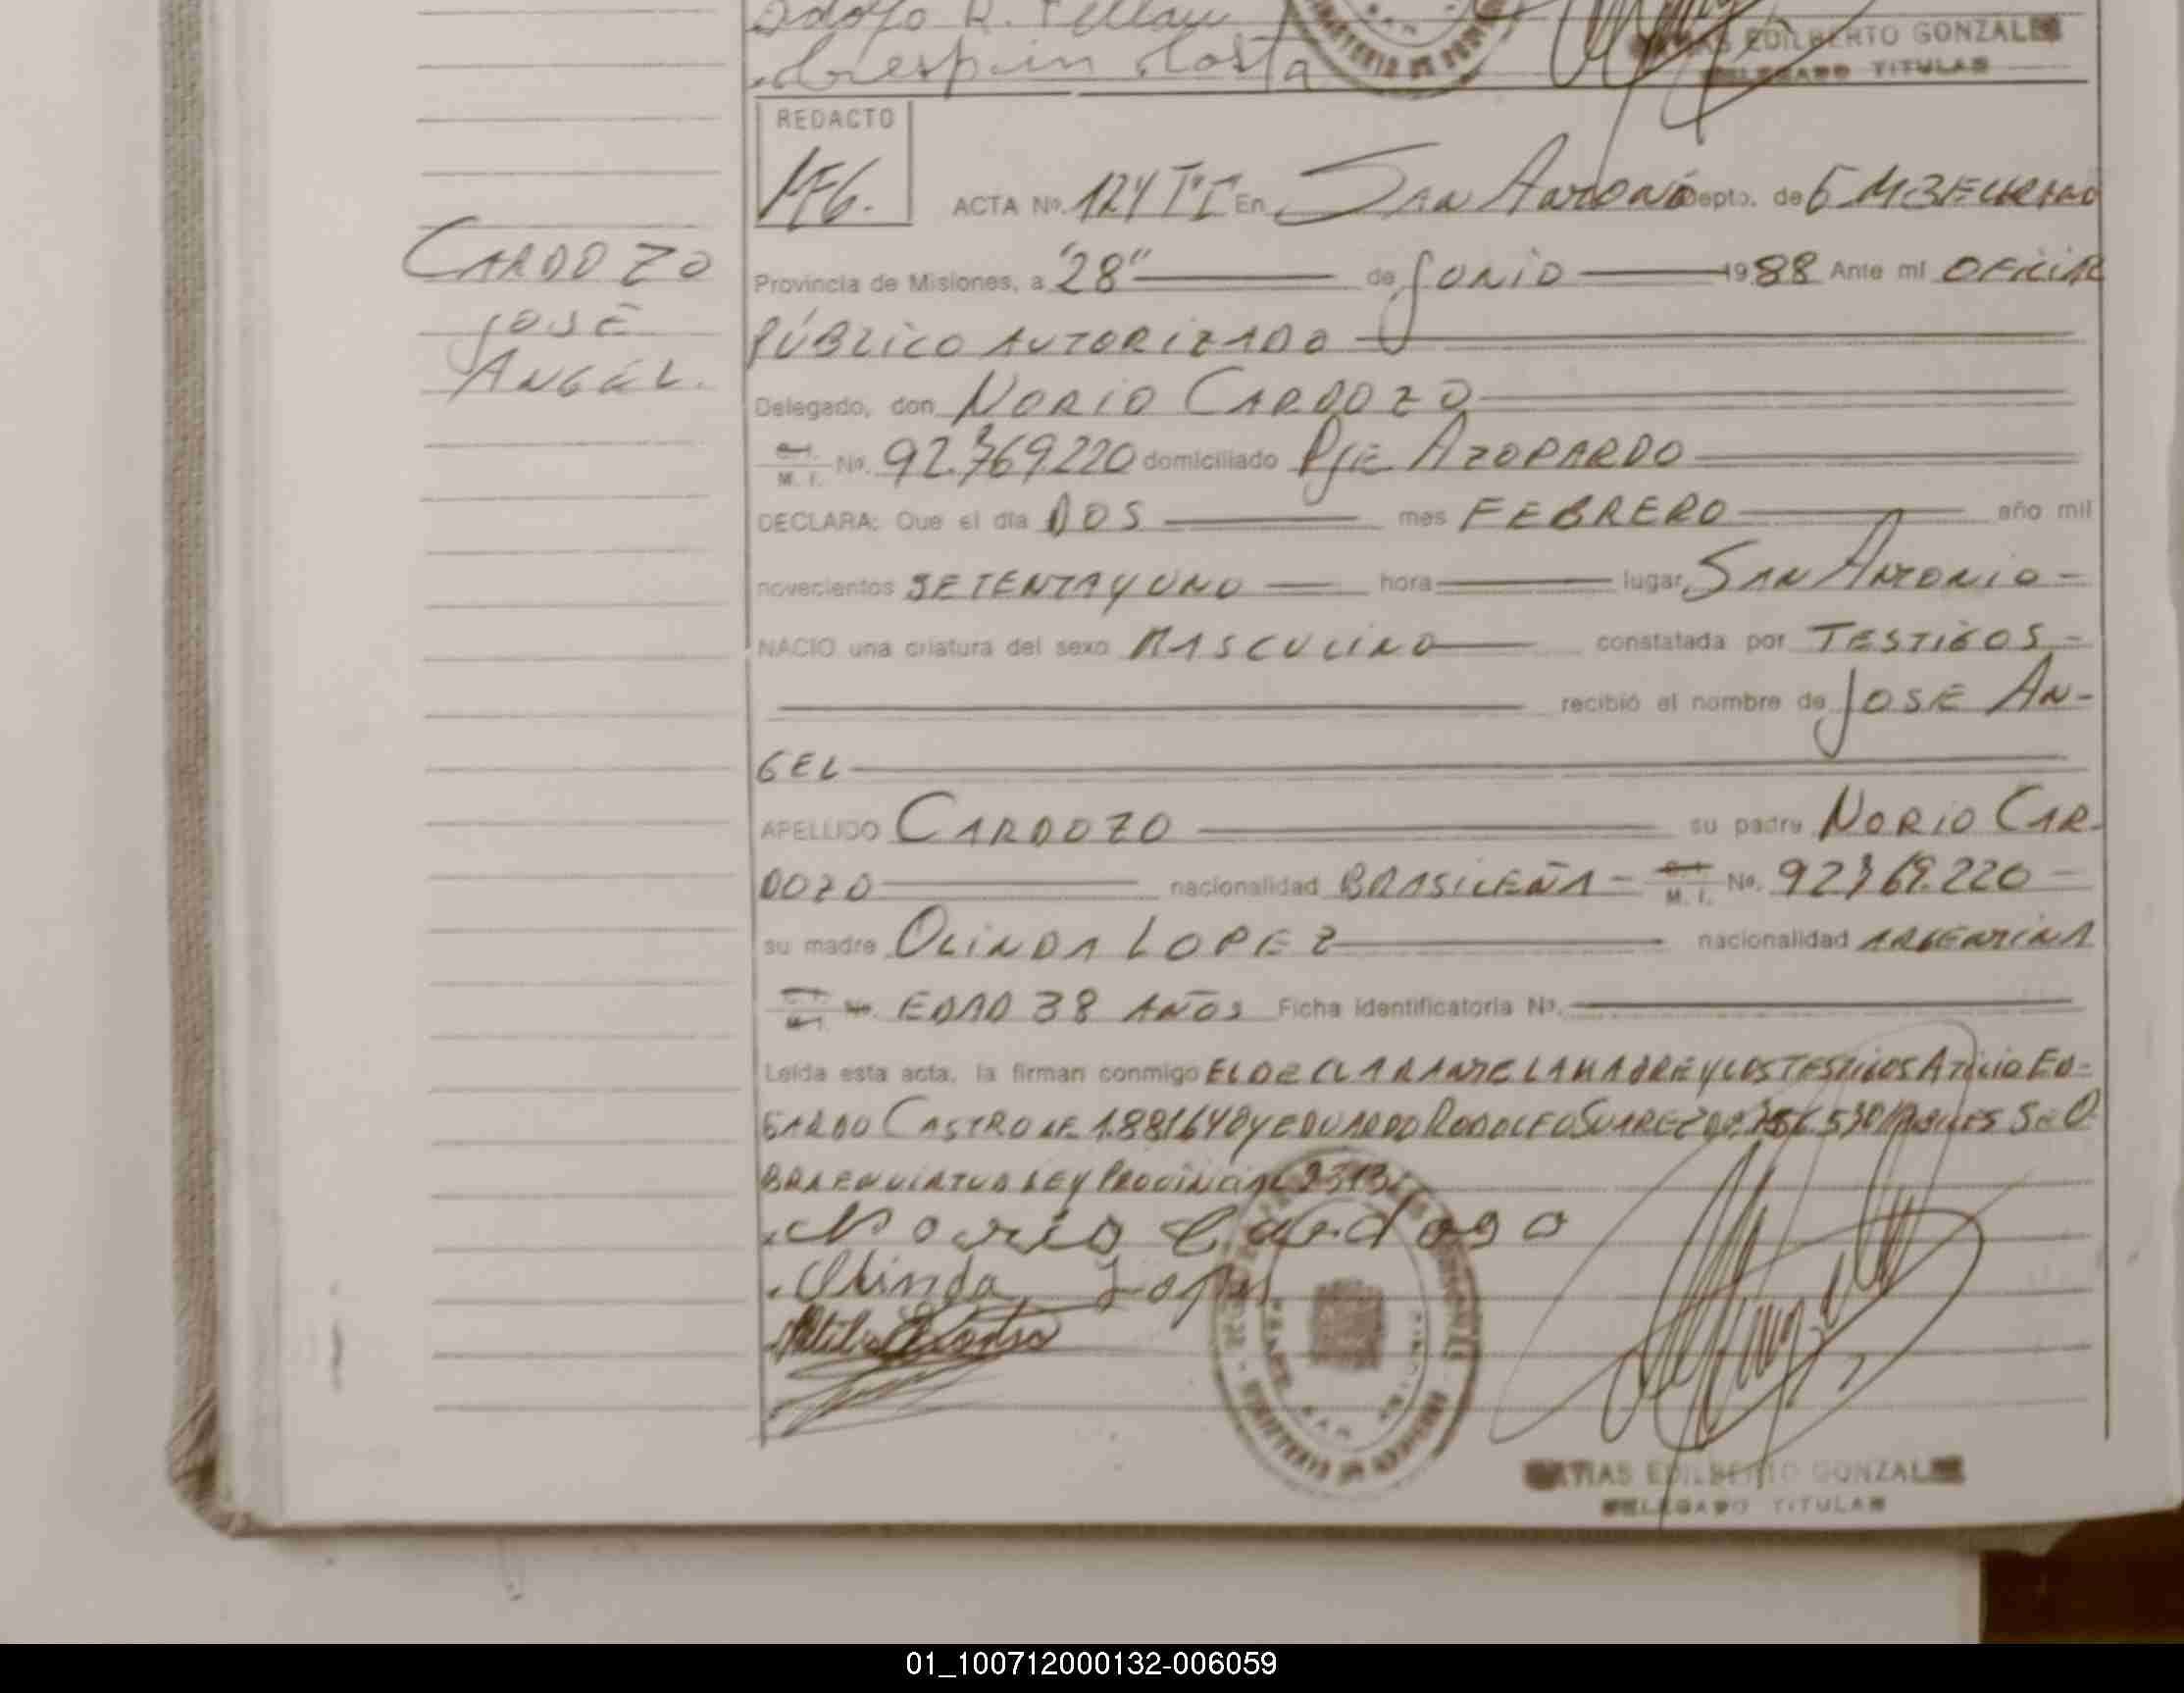 Adolfo R.
Crespin Costa
EDILBERTO GONZALE
DELEGADO TITULAR
REDACTO
MEG.
ACTA Nº. 124 TºI En SAN ANTONIO Depto. de
Provincia de Misiones, a "28" de JUNIO 1988 Ante mí OFICIAL
PÚBLICO AUTORIZADO
Delegado, don NORIO CARDOZO
M. I. Nº. 92.369.220 domiciliado PJE AZOPARDO
DECLARA: Que el día DOS mes FEBRERO año mil
novecientos SETENTA Y UNO hora lugar SAN ANTONIO -
NACIO una criatura del sexo MASCULINO constatada por TESTIGOS -
recibió el nombre de JOSE AN-
GEL
APELLIDO CARDOZO su padre NORIO CAR-
DOZO nacionalidad BRASILEÑA - M. I. Nº. 92369.220 -
su madre OLINDA LOPEZ nacionalidad ARGENTINA
EDAD 38 AÑOS Ficha identificatoria Nº.
Leída esta acta, la firman conmigo EL DECLARANTE LA MADRE Y LOS TESTIGOS ATILIO ED-
GARDO CASTRO LE 1.881648 Y EDUARDO RODOLFO SUAREZ
BRA EN VIRTUD LEY PROVINCIAL 2313
Norio Cardozo
Olinda Lopes
MATIAS EDILBERTO GONZALE
DELEGADO TITULAR
CARDOZO
JOSÉ
ANGEL.
01_100712000132-006059